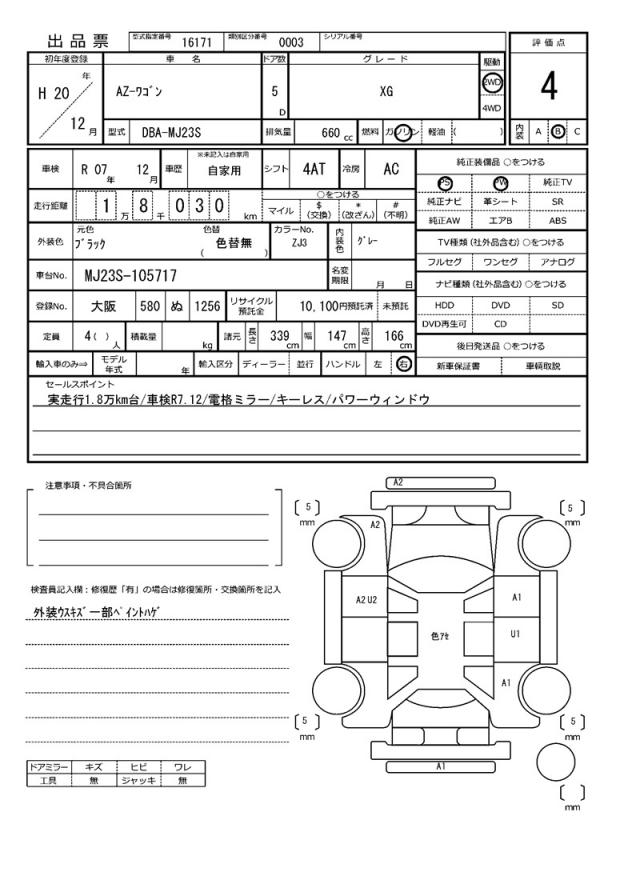 出品票 型式指定番号 16171 類別区分番号 0003 シリアル番号
評価点
4
内装 A B C
初年度登録 車名 ドア数 グレード 駆動
H 20 年 12 月 AZ-ワゴン 5 D XG 2WD 4WD
型式 DBA-MJ23S 排気量 660 cc 燃料 ガソリン 軽油 ( )
車検 R 07 年 12 月 車歴 ※未記入は自家用 自家用 シフト 4AT 冷房 AC
走行距離 1 万 8 千 0 3 0 km
○をつける
マイル $ (交換) * (改ざん) # (不明)
外装色 元色 ブラック 色替 ( 色替無 ) カラーNo. ZJ3 内装色 グレー
車台No. MJ23S-105717 名変期限 月 日
登録No. 大阪 580 ぬ 1256 リサイクル預託金 10,100円預託済 未預託
定員 4( ) 人 積載量 kg 諸元 長さ 339 cm 幅 147 cm 高さ 166 cm
輸入車のみ⇒ モデル年式 年 輸入区分 ディーラー 並行 ハンドル 左 右
純正装備品 ○をつける
PS PW 純正TV
純正ナビ 革シート SR
純正AW エアB ABS
TV種類 (社外品含む) ○をつける
フルセグ ワンセグ アナログ
ナビ種類 (社外品含む) ○をつける
HDD DVD SD
DVD再生可 CD
後日発送品 ○をつける
新車保証書 車輌取説
セールスポイント
実走行1.8万km台/車検R7.12/電格ミラー/キーレス/パワーウィンドウ
注意事項・不具合箇所
検査員記入欄：修復歴「有」の場合は修復箇所・交換箇所を記入
外装ウスキズ一部ペイントハゲ
ドアミラー キズ ヒビ ワレ
工具 無 ジャッキ 無
A2
5 mm
A2
5 mm
A2 U2
A1
色アセ
U1
A1
5 mm
5 mm
A1
mm